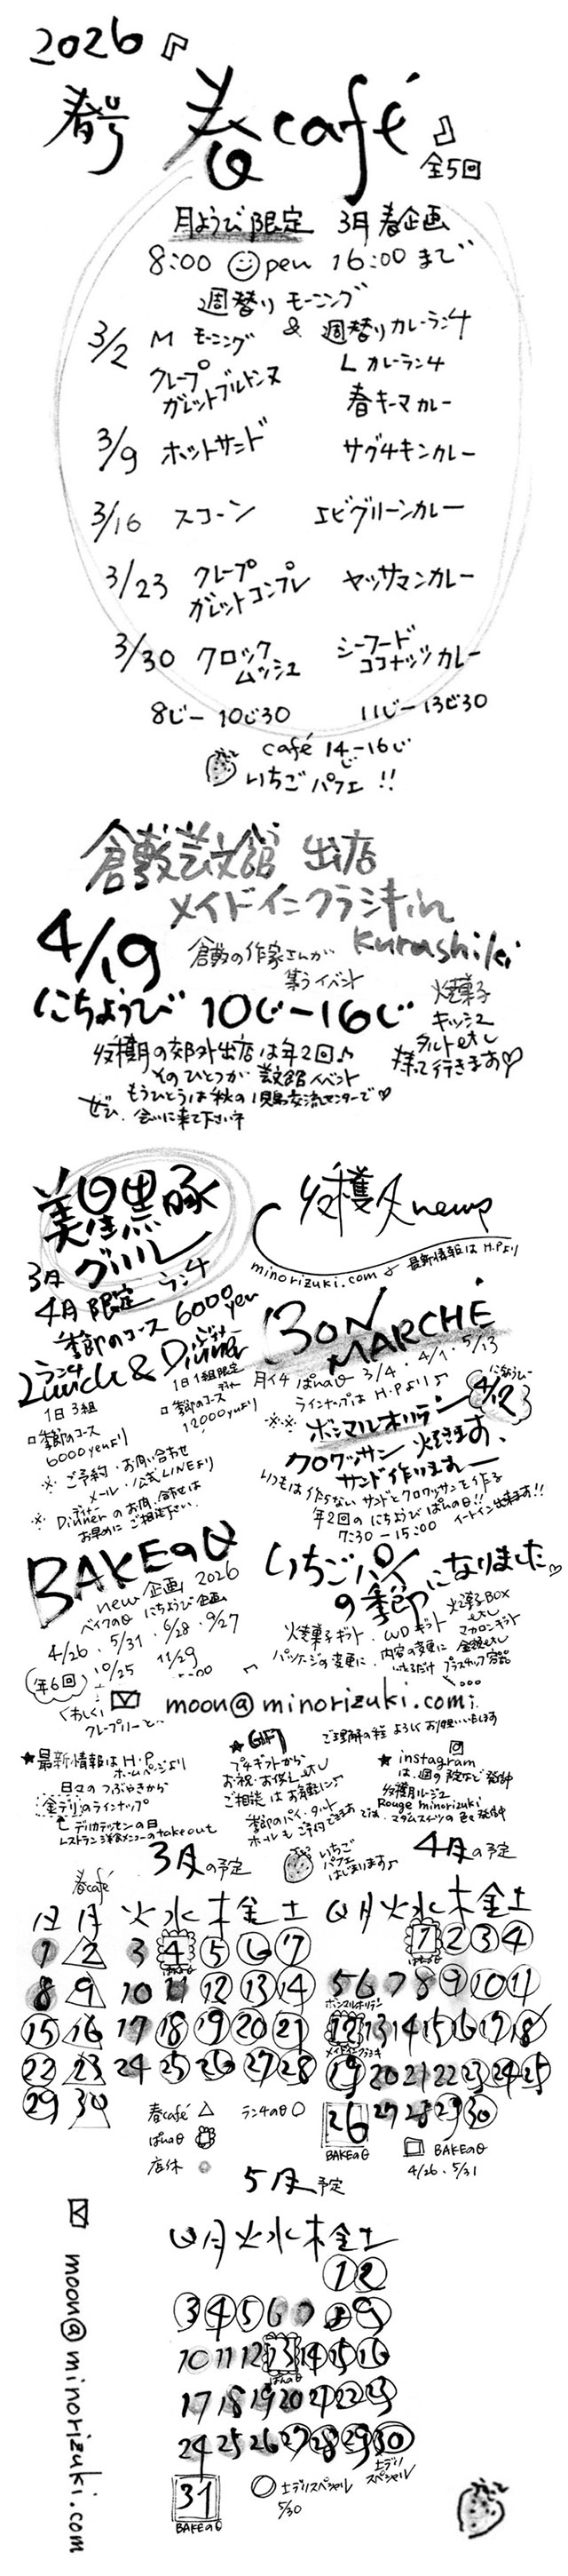 2026
春号
『春café』
全5回
月ようび限定 3月春企画
8:00 open 16:00まで
週替りモーニング
& 週替りカレーランチ
3/2 M モーニング L カレーランチ
クレープ
ガレットブルトンヌ 春キーマカレー
3/9 ホットサンド サグチキンカレー
3/16 スコーン エビグリーンカレー
3/23 クレープ
ガレットコンプレ マッサマンカレー
3/30 クロック
ムッシュ シーフード
ココナッツカレー
8じ-10じ30 11じ-13じ30
café 14じ-16じ
いちごパフェ!!
倉敷芸文館 出店
メイドインクラシキin
Kurashiki
4/19 倉敷の作家さんが
集うイベント
にちようび 10じ-16じ
焼菓子
キッシュ
タルトetc
持って行きます♡
収穫月の郊外出店は年2回♪
そのひとつが 芸文館イベント
もうひとつは秋の児島交流センターで♡
ぜひ、会いに来て下さいネ
美星黒豚
グリル
3月
4月限定 ランチ
季節のコース 6000yen
収穫月news
minorizuki.com 最新情報はH.Pより
ランチ ディナー
Lunch & Dinner
1日3組
□季節のコース
6000yenより
1日1組限定
□季節のコース
12000yenより
※ ご予約・お問い合わせ
メール・公式LINEより
※ ディナー
Dinnerのお問い合せは
お早めに ご相談下さい.
BON
MARCHÉ
月イチ ぱんの日 3/4・4/1・5/13
ラインナップは H.Pより♪
にちようびー
4/12
ボンマルオリテン
クロワッサン 焼きます、
サンド作りますー
いつもは作らない サンドとクロワッサンを作る
年2回の にちようび ぱんの日!!
7:30-15:00 イートイン出来ます!!
BAKEの日
new企画 2026
ベイクの日 にちようび企画
4/26・5/31・6/28・9/27
年6回 10/25 11/29
いちごパイ
の季節になりました♡
焼菓子ギフト・WDギフト 焼菓子BOX
マカロンギフト
パッケージの変更に・内容の変更に
くわしく
moon@minorizuki.com
ご理解の程 よろしくお願いいたします
★最新情報は H.P
ホームページより
日々の つぶやきから
金デリのラインナップ
デリカテッセンの日
レストラン洋食メニューのtakeout
★ GIFT
プチギフトから
お祝・お供し etc
ご相談 はお気軽に♪
季節のパイ・タルト
ホールも ご予約できます
★ instagram
は、週の予定など発信中
収穫月ルージュ
Rouge minorizuki
3月の予定
いちご
パフェ
はじまります♪
4月の予定
春café
日 月 火 水 木 金 土
1 2 3 4 5 6 7
ぱんの日
8 9 10 11 12 13 14
15 16 17 18 19 20 21
22 23 24 25 26 27 28
29 30
春café △ ランチの日 ○
ぱんの日
店休
日 月 火 水 木 金 土
1 2 3 4
ぱんの日
5 6 7 8 9 10 11
ボンマルオリテン
12 13 14 15 16 17 18
メイドインクラシキ
19 20 21 22 23 24 25
26 27 28 29 30
BAKEの日
□ BAKEの日
4/26・5/31
5月予定
日 月 火 水 木 金 土
1 2
3 4 5 6 7 8 9
10 11 12 13 14 15 16
ぱんの日
17 18 19 20 21 22 23
24 25 26 27 28 29 30
土デリ
スペシャル
31
BAKEの日
○ 土デリスペシャル
5/30
moon@minorizuki.com